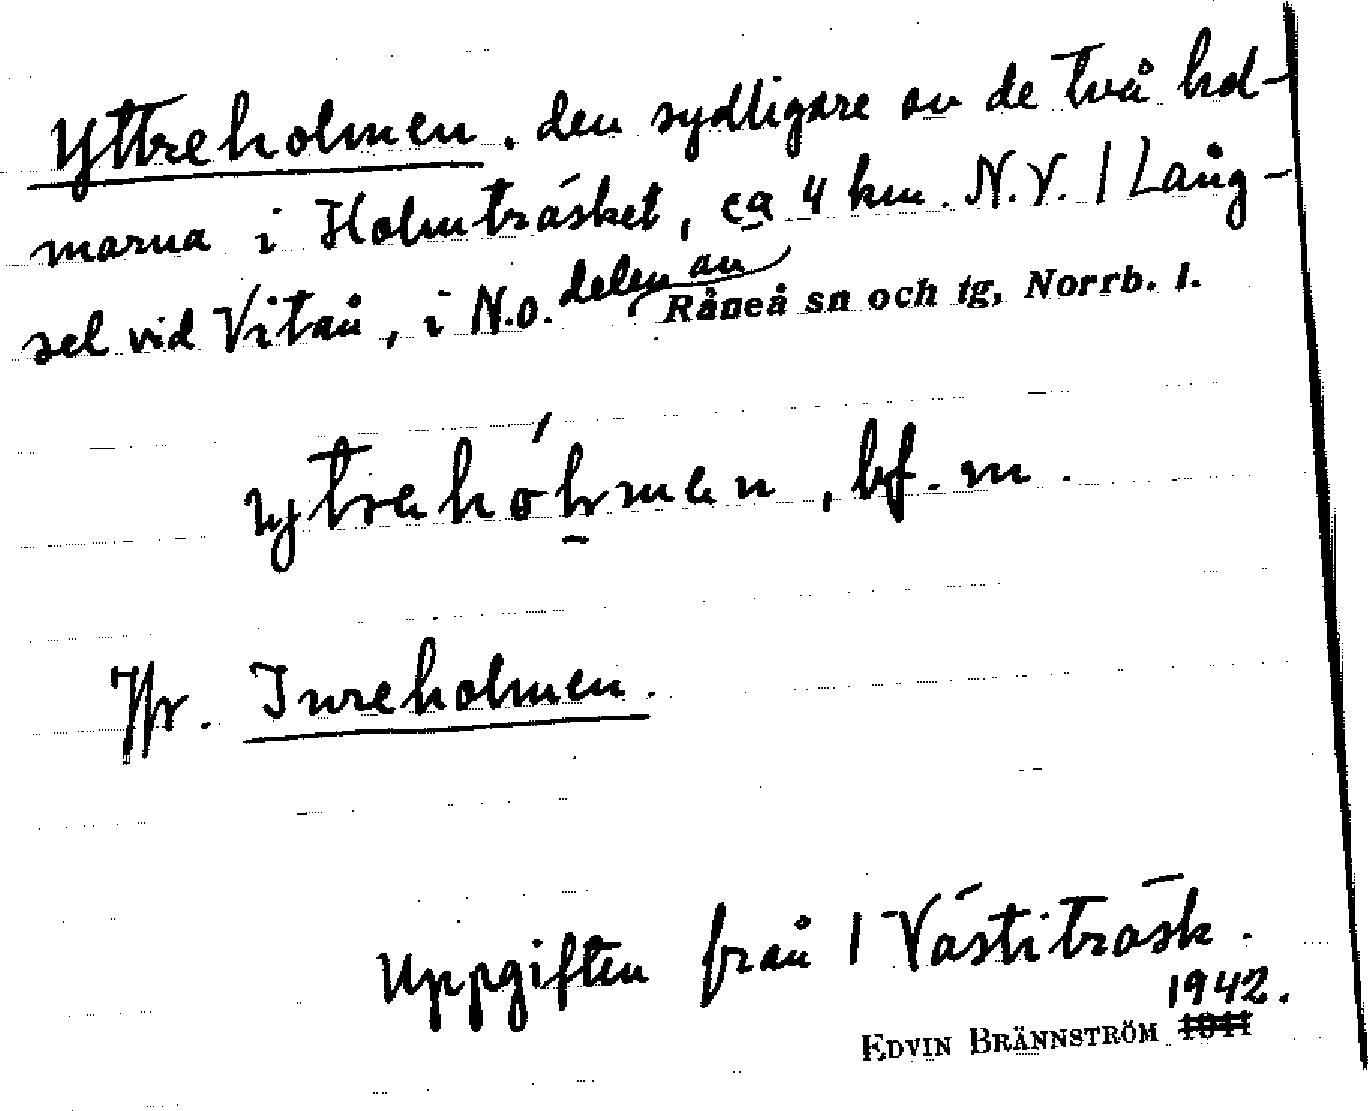 Yttreholmen, den sydligare av de två hol-
marna i Holmträsket, ca 4 km. N.V. / Lång-
sel vid Vitån, i N.o. delen av Råneå sn och tg, Norrb. l.
ytrehólmen, bf. m.
Jfr. Inreholmen.
Uppgiften från / Västiträsk.
1942.
EDVIN BRÄNNSTRÖM 1941